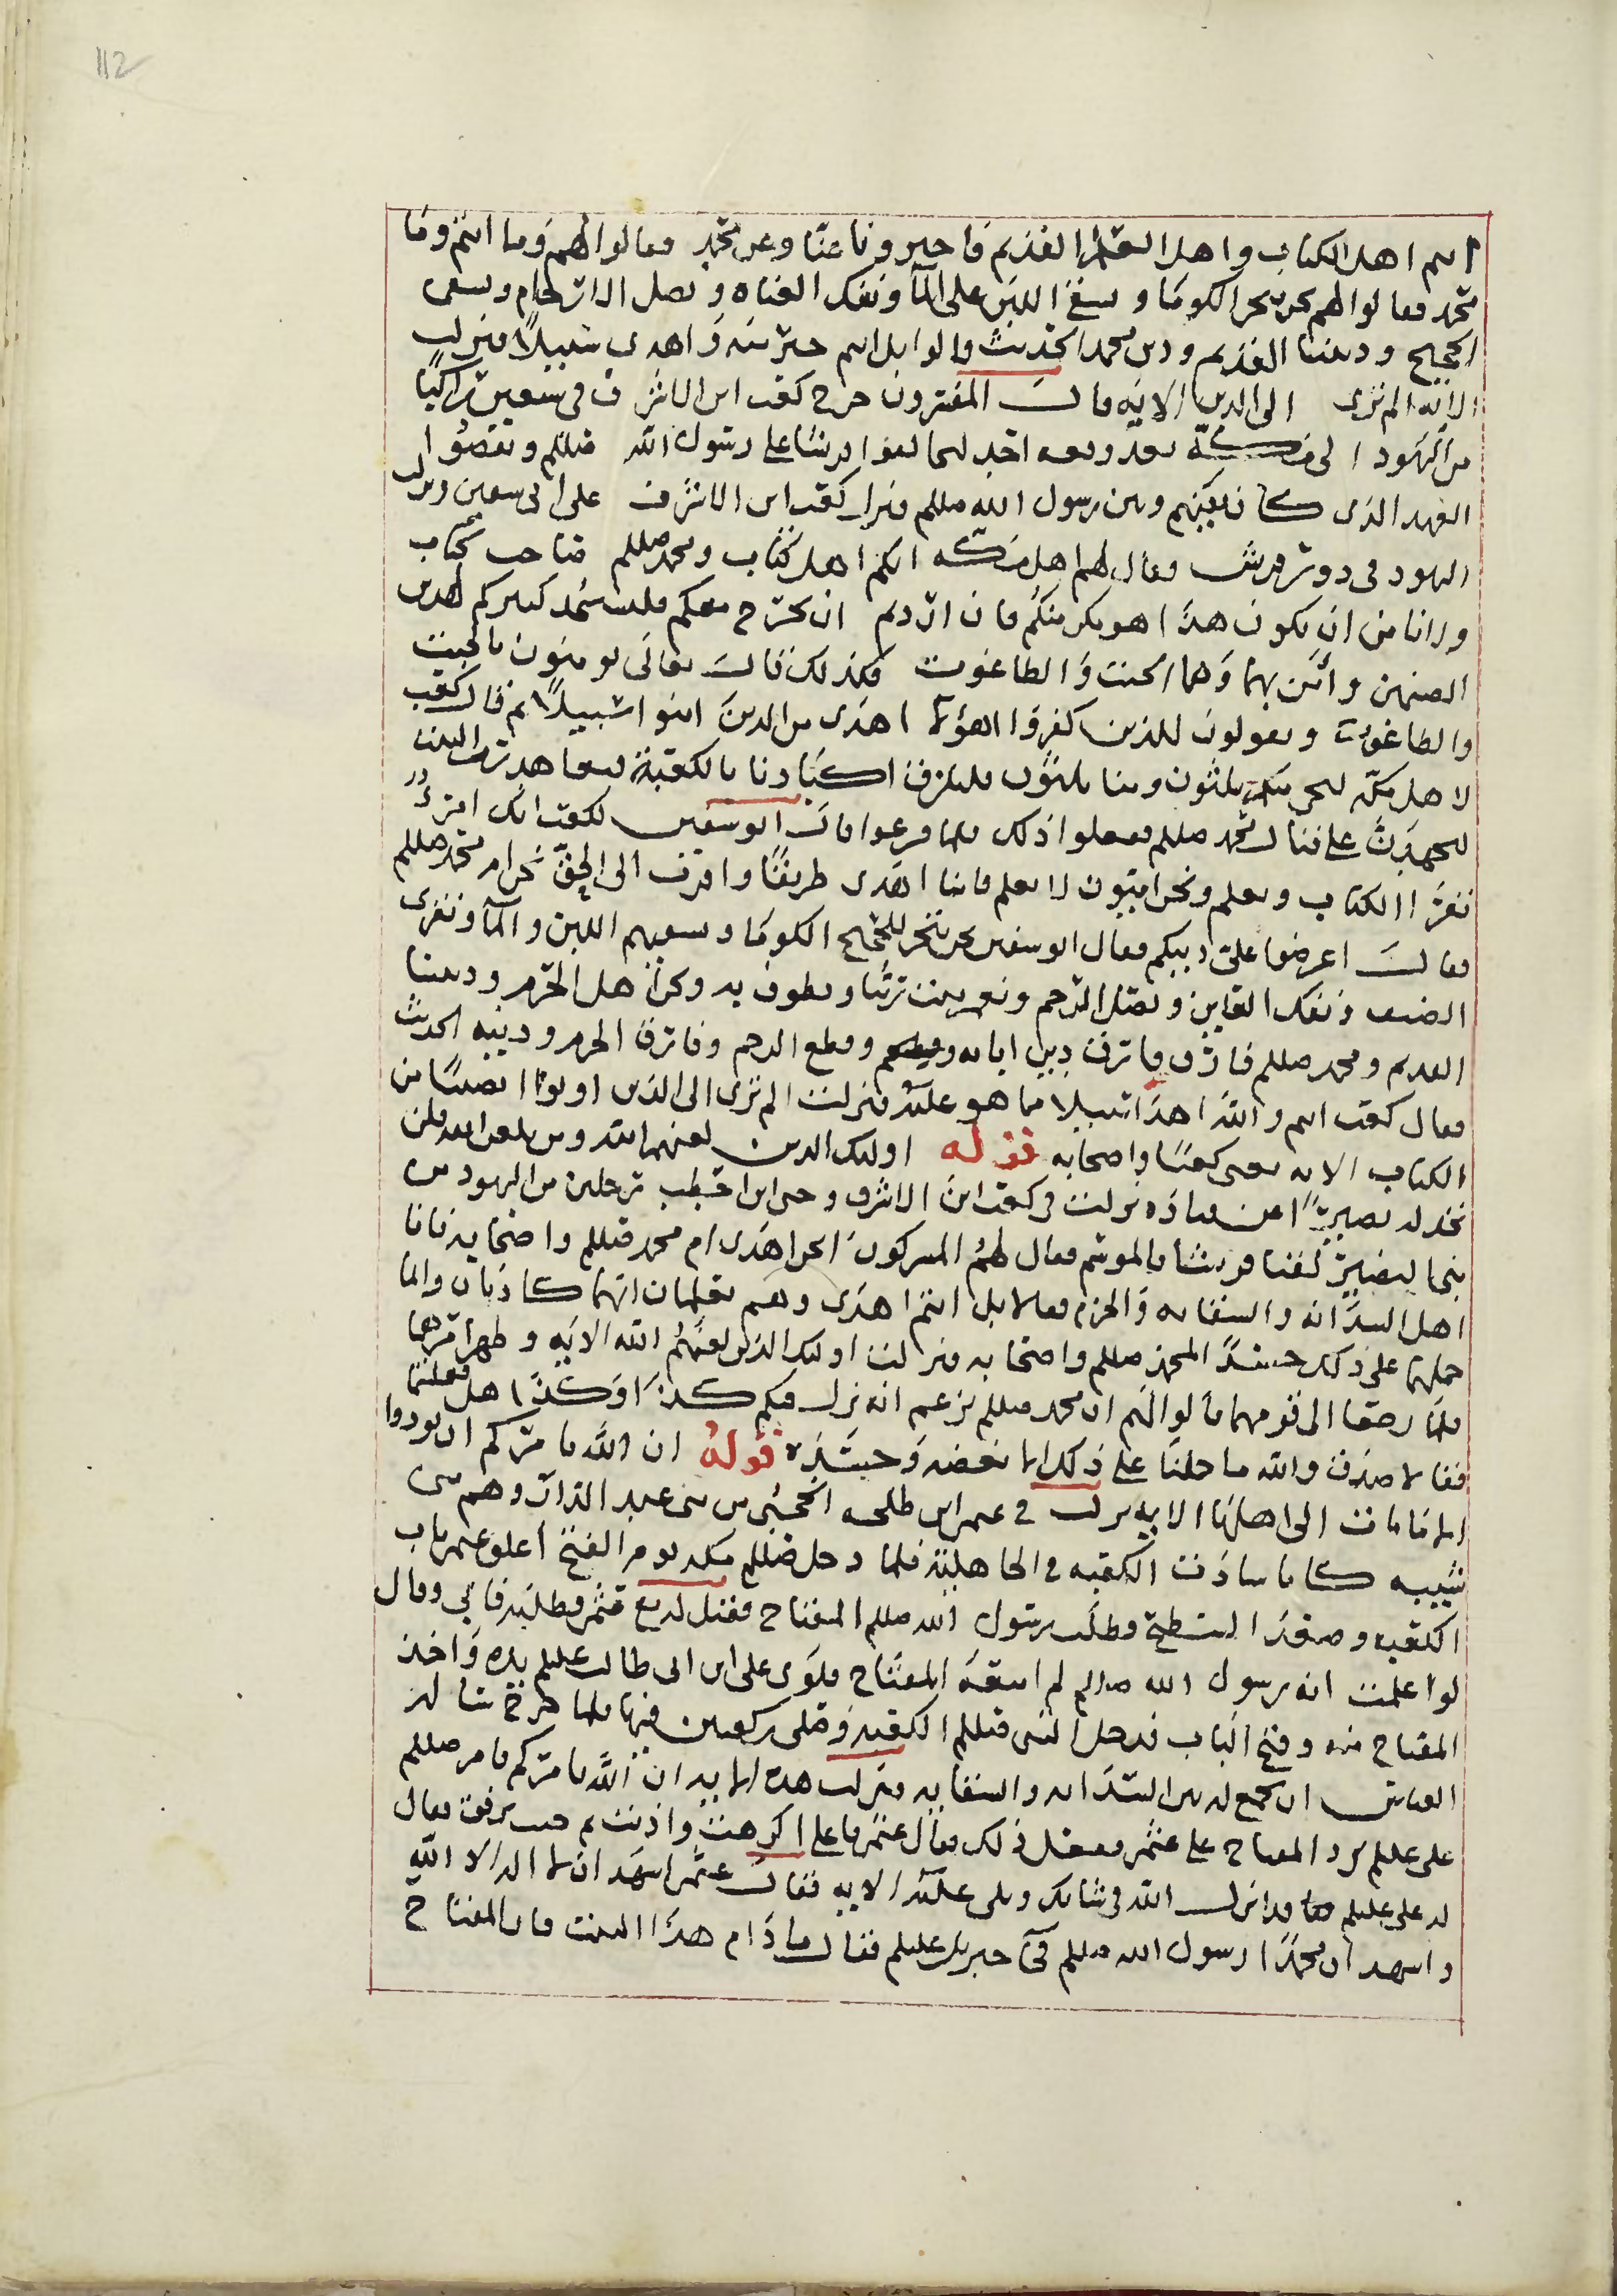 112
انتم اهل الكتاب واهل العلم القديم فاخبرونا عنا وعن محمد فقالوا لهم وما انتم وما
محمد فقالوا لهم نحن ننحر الكوما و نسقي اللبن على المآ ونفك العناه و نصل الارحام ونسقى
الحجيج وديننا القديم ودين محمد الحديث قالوا بل انتم خير منه واهدى سبيلاً فنزلت
الايه الم ترى الى الذين الايه قالـَ المفسرون خرج كعب ابن الاشرف في سبعين راكبًا
من اليهود الى مكّة بعد وقعه احد ليحالفوا قريشا على رسول الله صللم وينقضوا
العهد الذى كان بينهم وبين رسول الله صللم فنزل كعب ابن الاشرف على ابي سفين ونزلت
اليهود في دور قريش فقال لهم اهل مكه انكم اهل كتاب ومحمد صللم صاحب كتاب
ولا نامن ان يكون هذا مكر منكم فان اردتم ان نخرج معكم فاسجد كبيركم لهذين
الصنمين وأمن بهما وهما الجبت و الطاغوت فلذلك قالـَ تعالى يومنون بالجبت
والطاغوت ويقولون للذين كفروا اهؤلآ اهدى من الذين امنوا سبيلاً ثم قال كعب
لاهل مكّه ليجي منكم ثلثون ومنا ثلثون فنلزق اكبادنا بالكعبة فنعاهد رب البيت
لنجهدن على قتال محمد صللم ففعلوا ذلك فلما فرغوا قال ابو سفين لكعب انك امرءٌ
تقرا الكتاب وتعلم ونحن اميّون لا نعلم فاينا اهدى طريقًا واقرب الى الحق نحن ام محمد صللم
فقالـَ اعرضوا علىّ دينكم فقال ابو سفين نحن ننحر للحجيج الكوما ونسقيهم اللبن والمآ ونقرى
الضيف ونفك العاني ونصل الرحم ونعمر بيت ربّنا ونطوف به ونحن اهل الحرم وديننا
القديم ومحمد صللم فارق دين ابايه وقطع الرحم وفارق الحرم ودينه الحديث
فقال كعب انتم والله اهدا سبيلا مما هو عليه فنزلت الم ترى الى الذين اوتوا نصيبًا من
الكتاب الايه يعنى كعبًا واصحابه قوله اوليك الذين لعنهم الله ومن يلعن الله فلن
تجد له نصيرًا عن قتاده نزلت في كعب ابن الاشرف وحى ابن اخطب رجلين من اليهود من
بنى النضير لقيا قريشا بالموسم فقال لهمُ المشركونَ انحن اهدى ام محمد صللم واصحابه فانا
اهل السدانه والسقايه والحرم فقالا بل انتم اهدى وهم يعلمان انهما كاذبان وانما
حملهما على ذلك حسدً المحمد صللم واصحابه فنزلت اوليك الذين لعنهمُ الله الايه
فلما رجعا الى قومهما قالوا لهم ان محمد صللم يزعم انه نزل فيكم كذا وكذا
فقالا صدق والله ما حملنا على ذلك الا بغضه وحسَده قولهُ ان الله يامركم ان تودوا
الامانات الى اهلها الايه نزلت في عثمن ابن طلحه الحجبى من بنى عبد الدار وهم بنى
شيبه كانا سادن الكعبه في الجاهلية فلما دخل صللم مكه يوم الفتح أغلق عثمن باب
الكعبه وصعد السطح وطلب رسول الله صللم المفتاح فقيل له مع عثمن وطلبه فابي وقال
لو اعلمت انه رسول الله صللم لم امنعه المفتاح فلوى على ابن ابى طالب عليلم يده واخذ
المفتاح منه وفتح الباب فدخل النبى صللم الكعبة وصلى ركعتين فيها فلما خرج ساله
العباس ان يجمع له بين السدانه والسقايه فنزلت هذه الايه ان الله يامركم فامر صللم
على عليلم برد المفتاح على عثمن وفعل ذلك فقال عثمن يا على اكرهت واذيت ثم جيت ترفق فقال
له على عليلم لقد انزل الله في شانك وتلى عليه الايه فقال عثمن اشهد ان لا اله الا الله
واشهد ان محمدًا رسول الله صللم فجآ جبريل عليلم فقال ما دام هذا البيت فان المفتاح